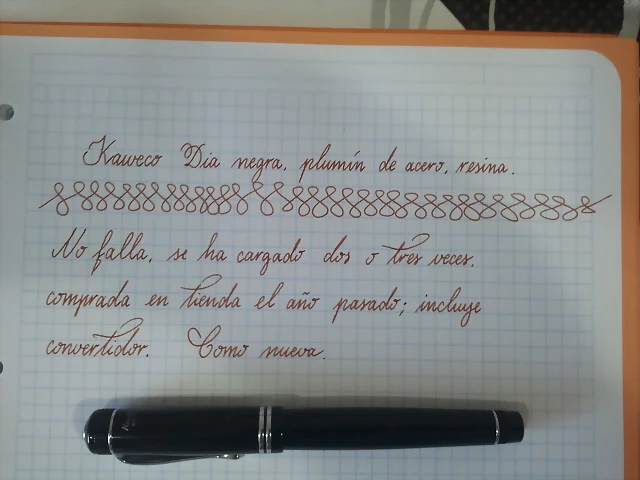 Kaweco Dia negra, plumín de acero, resina.
No falla, se ha cargado dos o tres veces,
comprada en tienda el año pasado; incluye
convertidor. Como nueva.